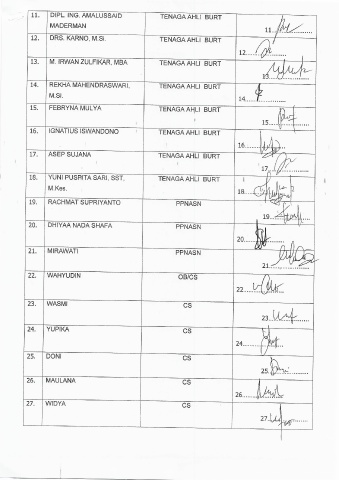 11. DIPL. ING. AMALUSSAID TENAGA AHLI BURT 11
MADERMAN
12. DRS. KARNO, M.Si. TENAGA AHLI BURT 12
13. M. IRWAN ZULFIKAR, MBA TENAGA AHLI BURT 13
14. REKHA MAHENDRASWARI, TENAGA AHLI BURT 14
M.Si.
15. FEBRYNA MULYA TENAGA AHLI BURT 15
16. IGNATIUS ISWANDONO TENAGA AHLI BURT 16
17. ASEP SUJANA TENAGA AHLI BURT 17
18. YUNI PUSPITA SARI, SST, TENAGA AHLI BURT 18
M.Kes.
19. RACHMAT SUPRIYANTO PPNASN 19
20. DHIYAA NADA SHAFA PPNASN 20
21. MIRAWATI PPNASN 21
22. WAHYUDIN OB/CS 22
23. WASMI CS 23
24. YUPIKA CS 24
25. DONI CS 25
26. MAULANA CS 26
27. WIDYA CS 27